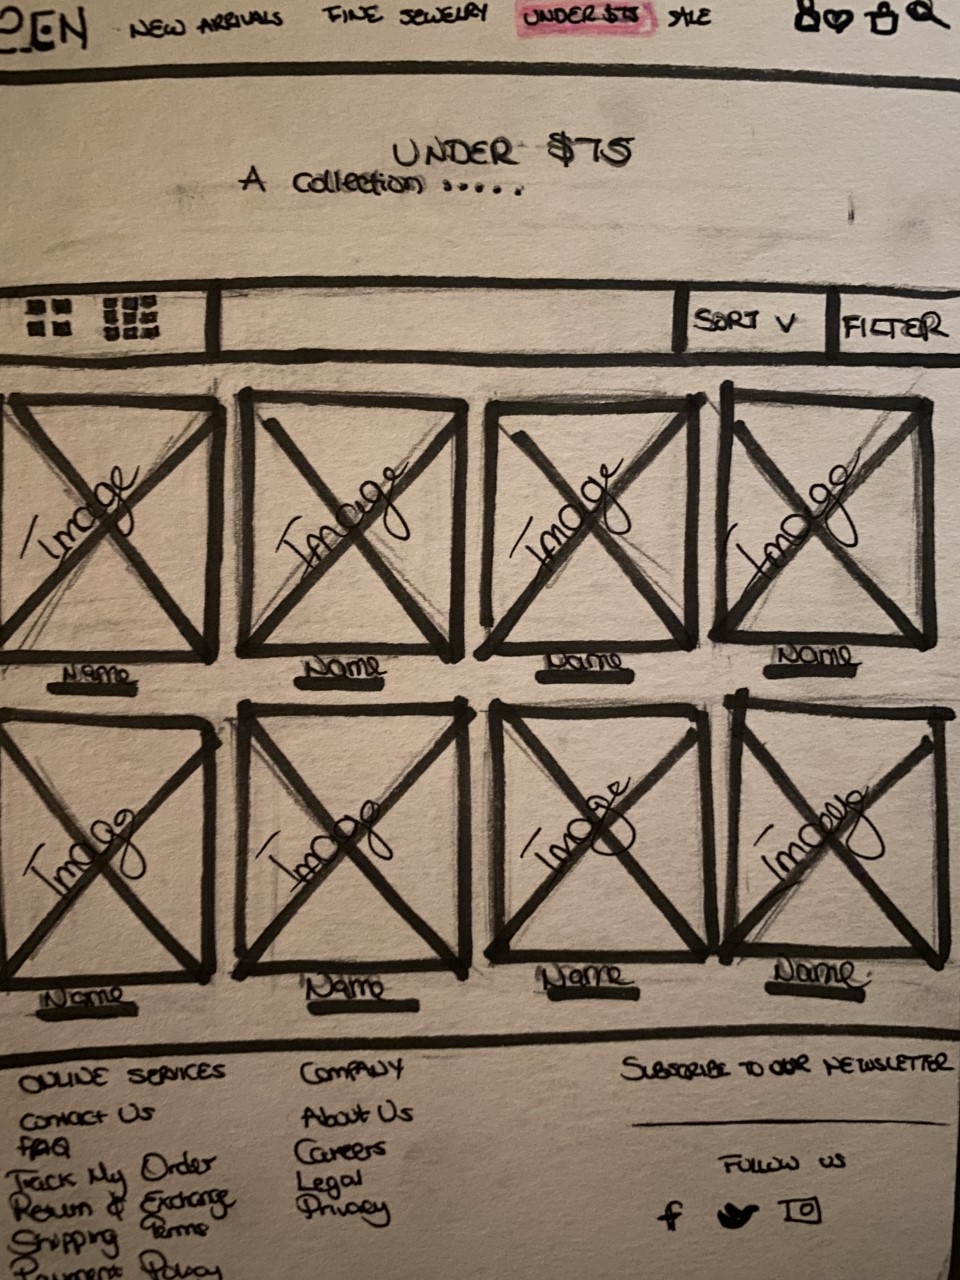 EN NEW ARRIVALS FINE JEWELRY UNDER $75 SALE
UNDER $75
A Collection .....
SORT V FILTER
Image Image Image Image
Name Name Name Name
Image Image Image Image
Name Name Name Name
ONLINE SERVICES
Contact Us
FAQ
Track My Order
Return & Exchange
Shipping Terms
Payment Policy
COMPANY
About Us
Careers
Legal
Privacy
SUBSCRIBE TO OUR NEWSLETTER
FOLLOW US
f